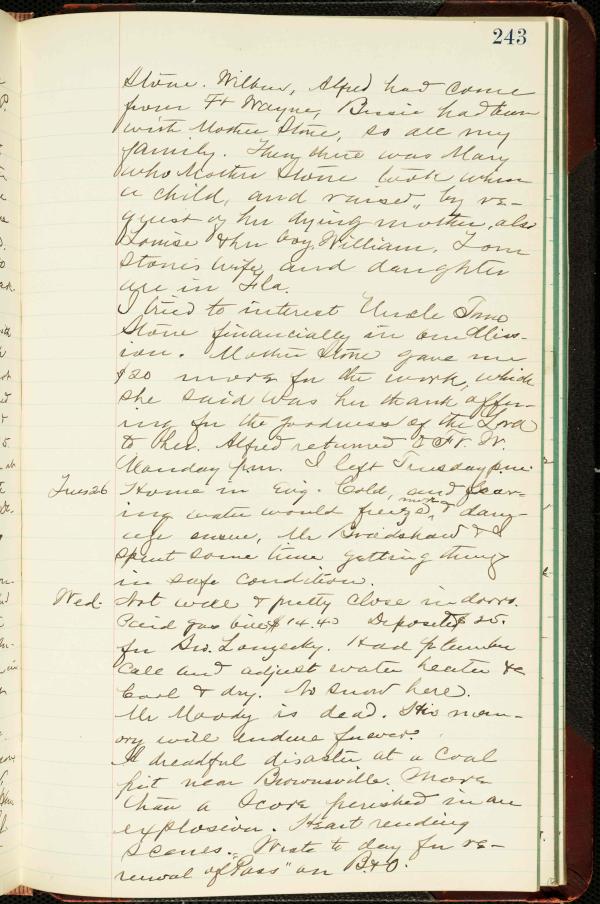 243
Stone. Wilbur, Alfred had come
from Ft Wayne, Bessie had been
with Mother Stone, so all my
family. Then there was Mary
who Mother Stone took when
a child, and raised, by re-
quest of her dying mother, also
Louise & her boy, William. Tom
Stone's wife, and daughter
are in Fla.
I tried to interest Uncle
Stone financially in our Miss-
ion. Mother Stone gave me
$20 more for the work, which
she said was her thank offer-
ing for the goodness of the Lord
to her. Alfred returned to Ft. W.
Monday p.m. I left Tuesday p.m.
Tues 26 Home in Evg. Cold, and fear-
ing water would freeze, more & dam-
age ensue, Mr Bradshaw & I
spent some time getting things
in safe condition.
Wed. Not well & pretty close in doors.
Paid gas bill $14.40 Deposited $25.
for Bro. Had plumber
call and adjust water heater &c
Cool & dry. No snow here.
Mr Moody is dead. His mem-
ory will endure forever.
A dreadful disaster at a Coal
pit near Brownsville. More
than a Score perished in an
explosion. Heart rending
scenes. Wrote to day for re-
newal of "Pass" on B&O.